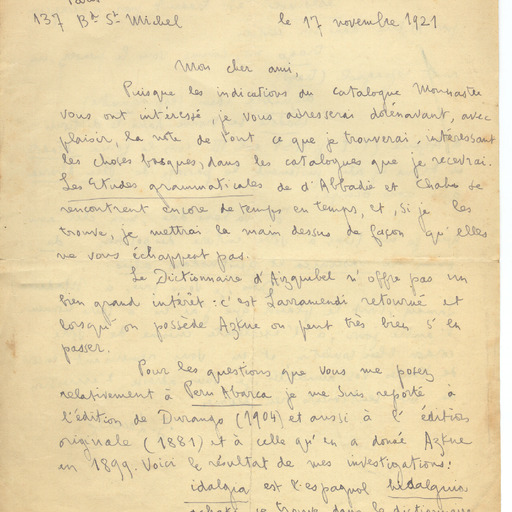 Paris
137 Bd St Michel le 17 novembre 1921
Mon cher ami,
Puisque les indications du catalogue Monnastre
vous ont intéressé, je vous adresserai dorénavant, avec
plaisir, la note de tout ce que je trouverai, intéressant
les choses basques, dans les catalogues que je recevrai.
Les Etudes grammaticales de d'Abbadie et Chaho se
rencontrent encore de temps en temps, et, si je les
trouve, je mettrai la main dessus de façon qu'elles
ne vous échappent pas.
Le Dictionnaire d'Aizquibel n'offre pas un
bien grand intérêt : c'est Larramendi retourné et
lorsqu'on possède Azkue on peut très bien s'en
passer.
Pour les questions que vous me posez
relativement à Peru Abarca je me suis reporté à
l'édition de Durango (1904) et aussi à l'édition
originale (1881) et à celle qu'en a donné Azkue
en 1899. Voici le résultat de mes investigations :
idalgia est l'espagnol hidalguia
se trouve dans le dictionnaire